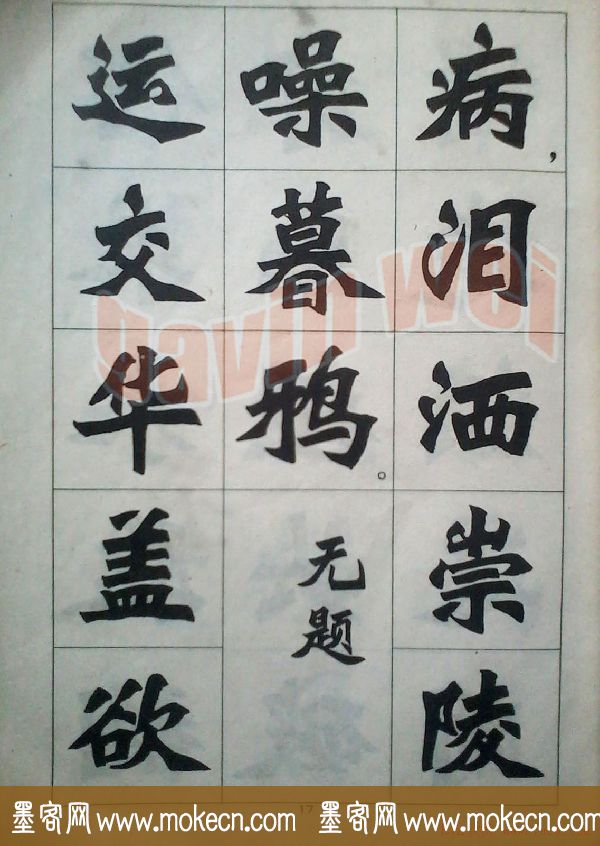 病，泪洒崇陵
噪暮鸦。
无题
运交华盖欲
gavin wei
17
墨客网 www.mokecn.com 墨客网 www.mokecn.com